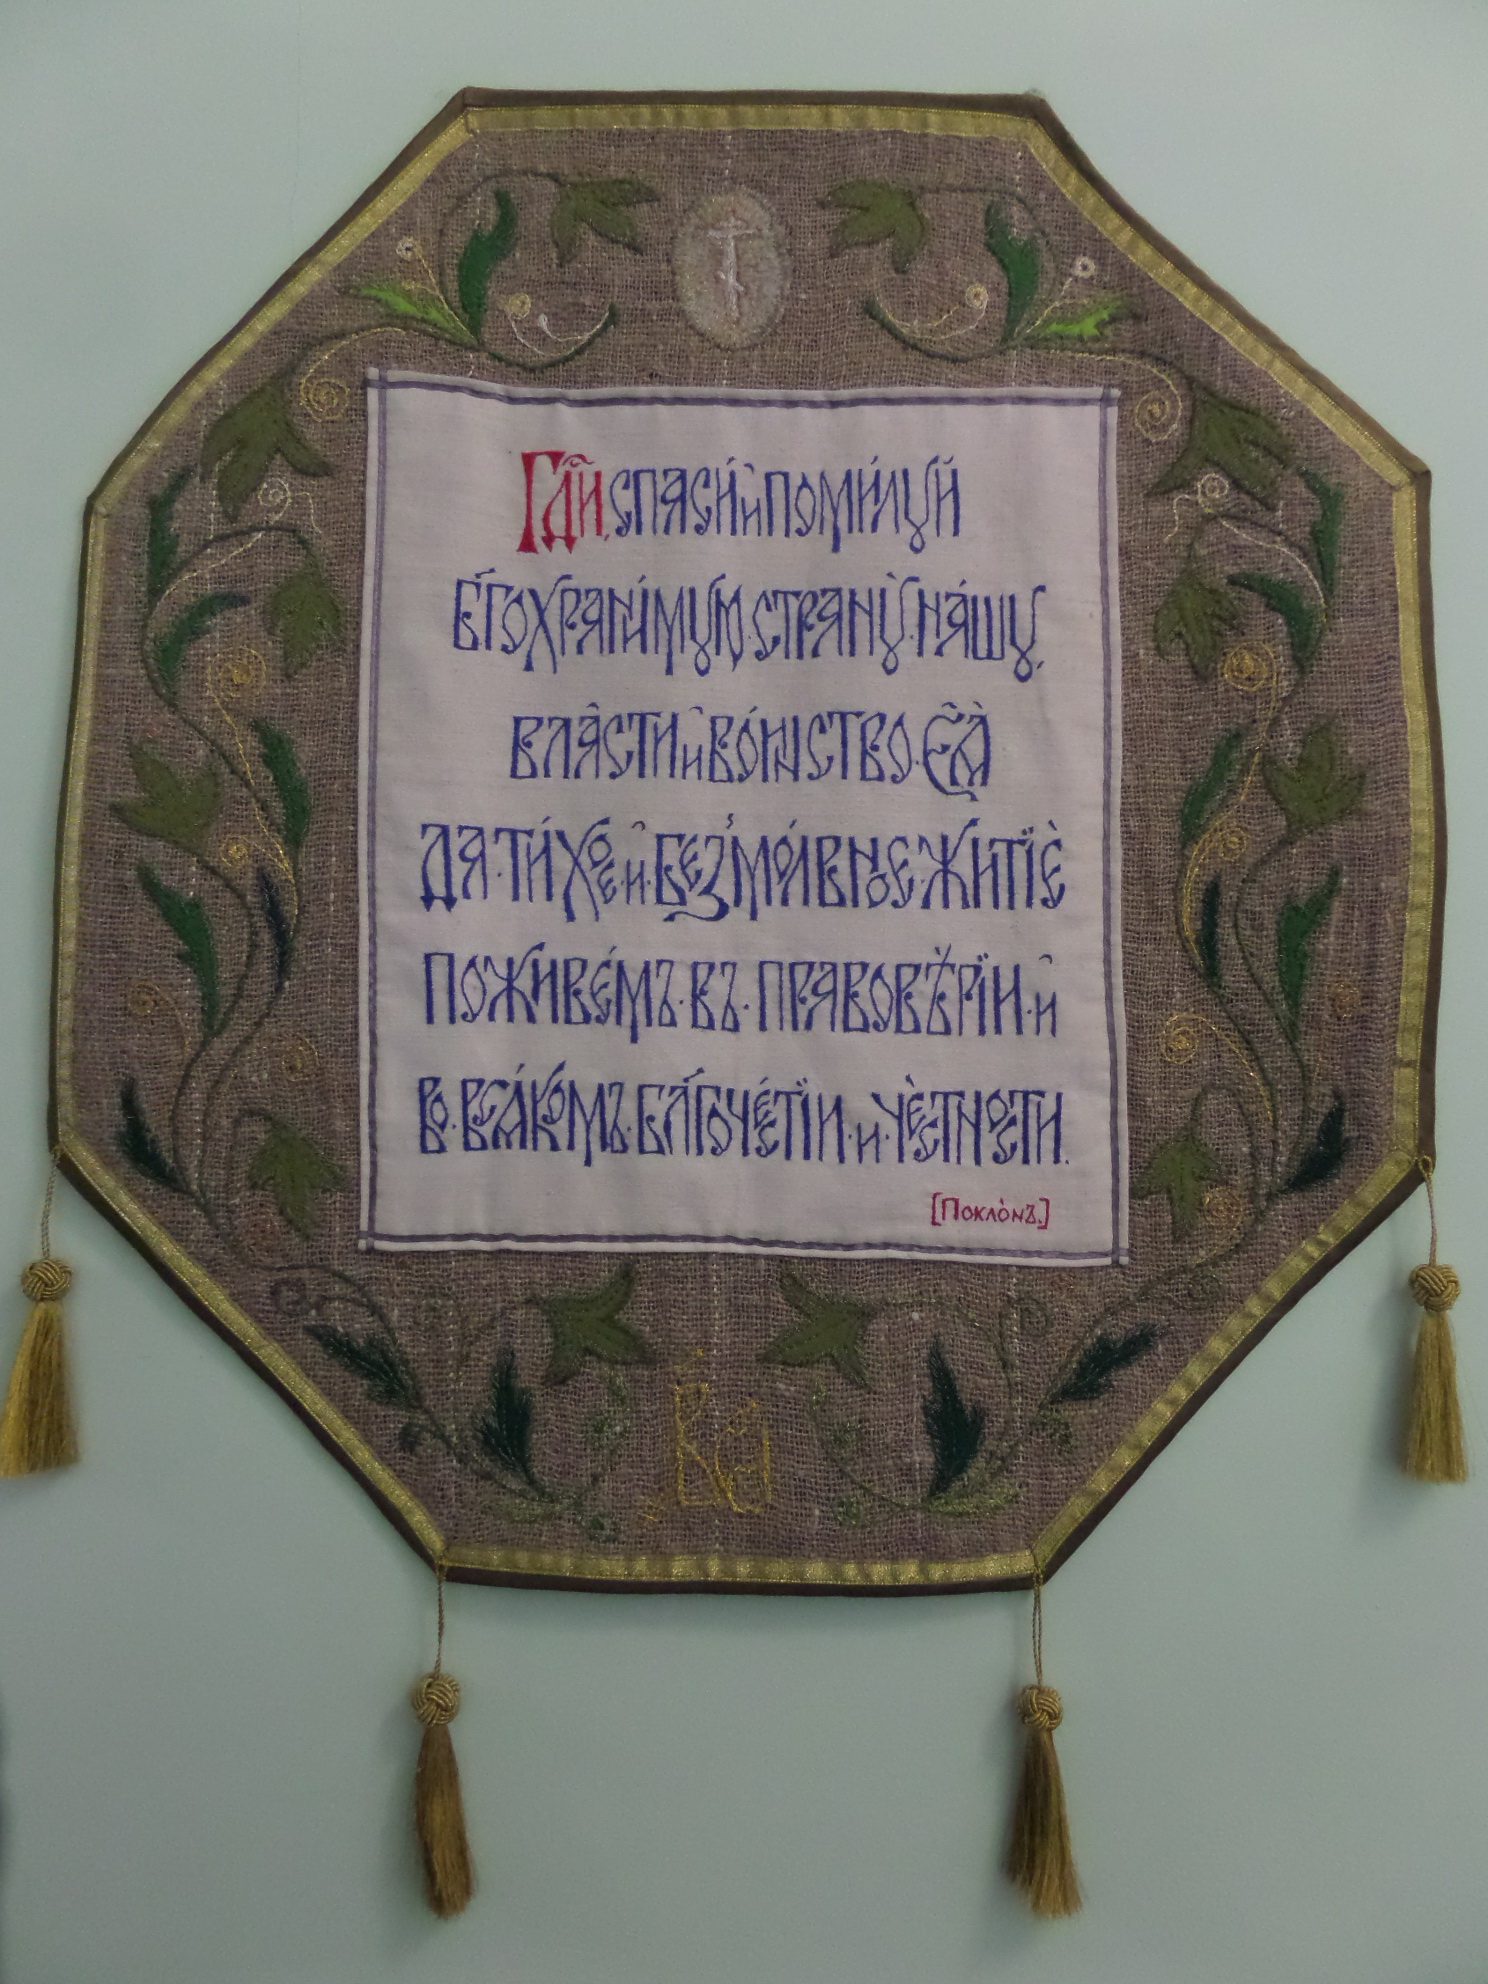 Гдⷭ҇и, спаси́ и҆ поми́луй
Бг҃охрани́мую страну̀ на́шу,
вла̑сти и҆ во́инство Єѧ҆̀
да ти́хое и҆ безмо́лвное житїѐ
поживе́мъ въ правовѣ́рїи и҆
во всѧ́комъ бл҃гоче́стїи и че́стности.
[Покло̀нъ.]